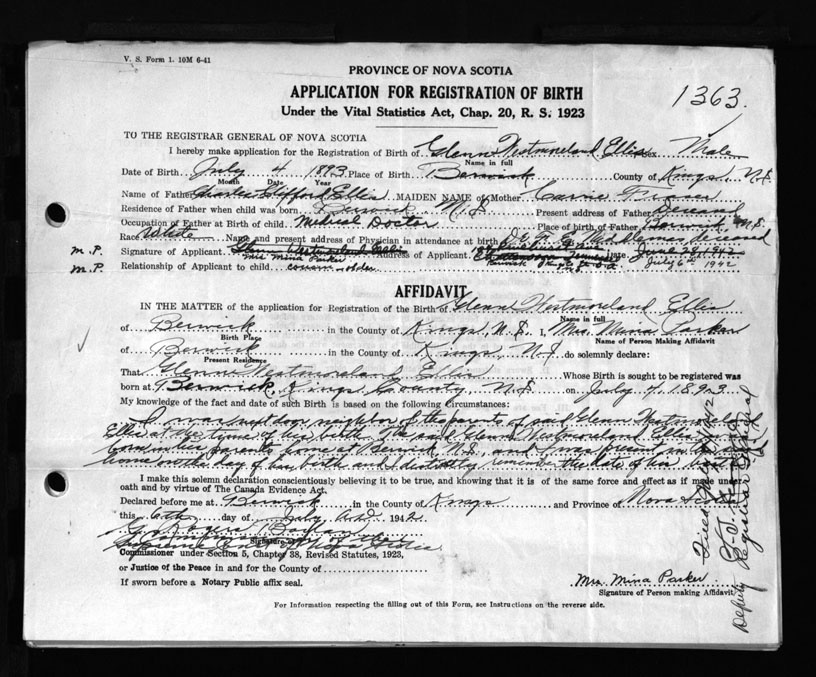 V. S. Form 1. 10M 6-41
PROVINCE OF NOVA SCOTIA
APPLICATION FOR REGISTRATION OF BIRTH
1363.
Under the Vital Statistics Act, Chap. 20, R. S. 1923
TO THE REGISTRAR GENERAL OF NOVA SCOTIA
I hereby make application for the Registration of Birth of Glenn Westmoreland Ellis Sex Male
Name in full
Date of Birth July 4 1893 Place of Birth Berwick County of Kings N.S.
Month Date Year
Name of Father Charles Clifford Ellis MAIDEN NAME of Mother Carrie
Residence of Father when child was born Berwick N.S. Present address of Father Deceased
Occupation of Father at Birth of child Medical Doctor Place of birth of Father Berwick N.S.
Race White Name and present address of Physician in attendance at birth
m.P. Signature of Applicant Glenn Westmoreland Ellis Address of Applicant Chattanooga Tennessee Date June 29 1942
Mrs Mina Parker Berwick July 6th 1942
m.P. Relationship of Applicant to child cousin older
AFFIDAVIT
IN THE MATTER of the application for Registration of the Birth of Glenn Westmoreland Ellis
Name in full
of Berwick in the County of Kings, N.S. I, Mrs. Mina Parker
Birth Place Name of Person Making Affidavit
of Berwick in the County of Kings, N.S. do solemnly declare:
Present Residence
That Glenn Westmoreland Ellis Whose Birth is sought to be registered was
born at Berwick, Kings County, N.S. on July 4 1893
My knowledge of the fact and date of such Birth is based on the following Circumstances:
I was next door neighbor of the parents of said Glenn Westmoreland
Ellis at the time of his birth. The said Glenn Westmoreland Ellis was
born in his parents home at Berwick, N.S., and I was present in the
home on the day of his birth and I distinctly remember the date of his birth
I make this solemn declaration conscientiously believing it to be true, and knowing that it is of the same force and effect as if made under
oath and by virtue of The Canada Evidence Act.
Declared before me at Berwick in the County of Kings and Province of Nova Scotia
this 6th day of July A.D. 1942.
G. Rogers
A Commissioner of the
Signature
Supreme Court of Nova Scotia
Commissioner under Section 5, Chapter 38, Revised Statutes, 1923,
or Justice of the Peace in and for the County of
If sworn before a Notary Public affix seal.
Mrs. Mina Parker
Signature of Person making Affidavit
For Information respecting the filling out of this Form, see Instructions on the reverse side.
Filed July 1942
Deputy Registrar General